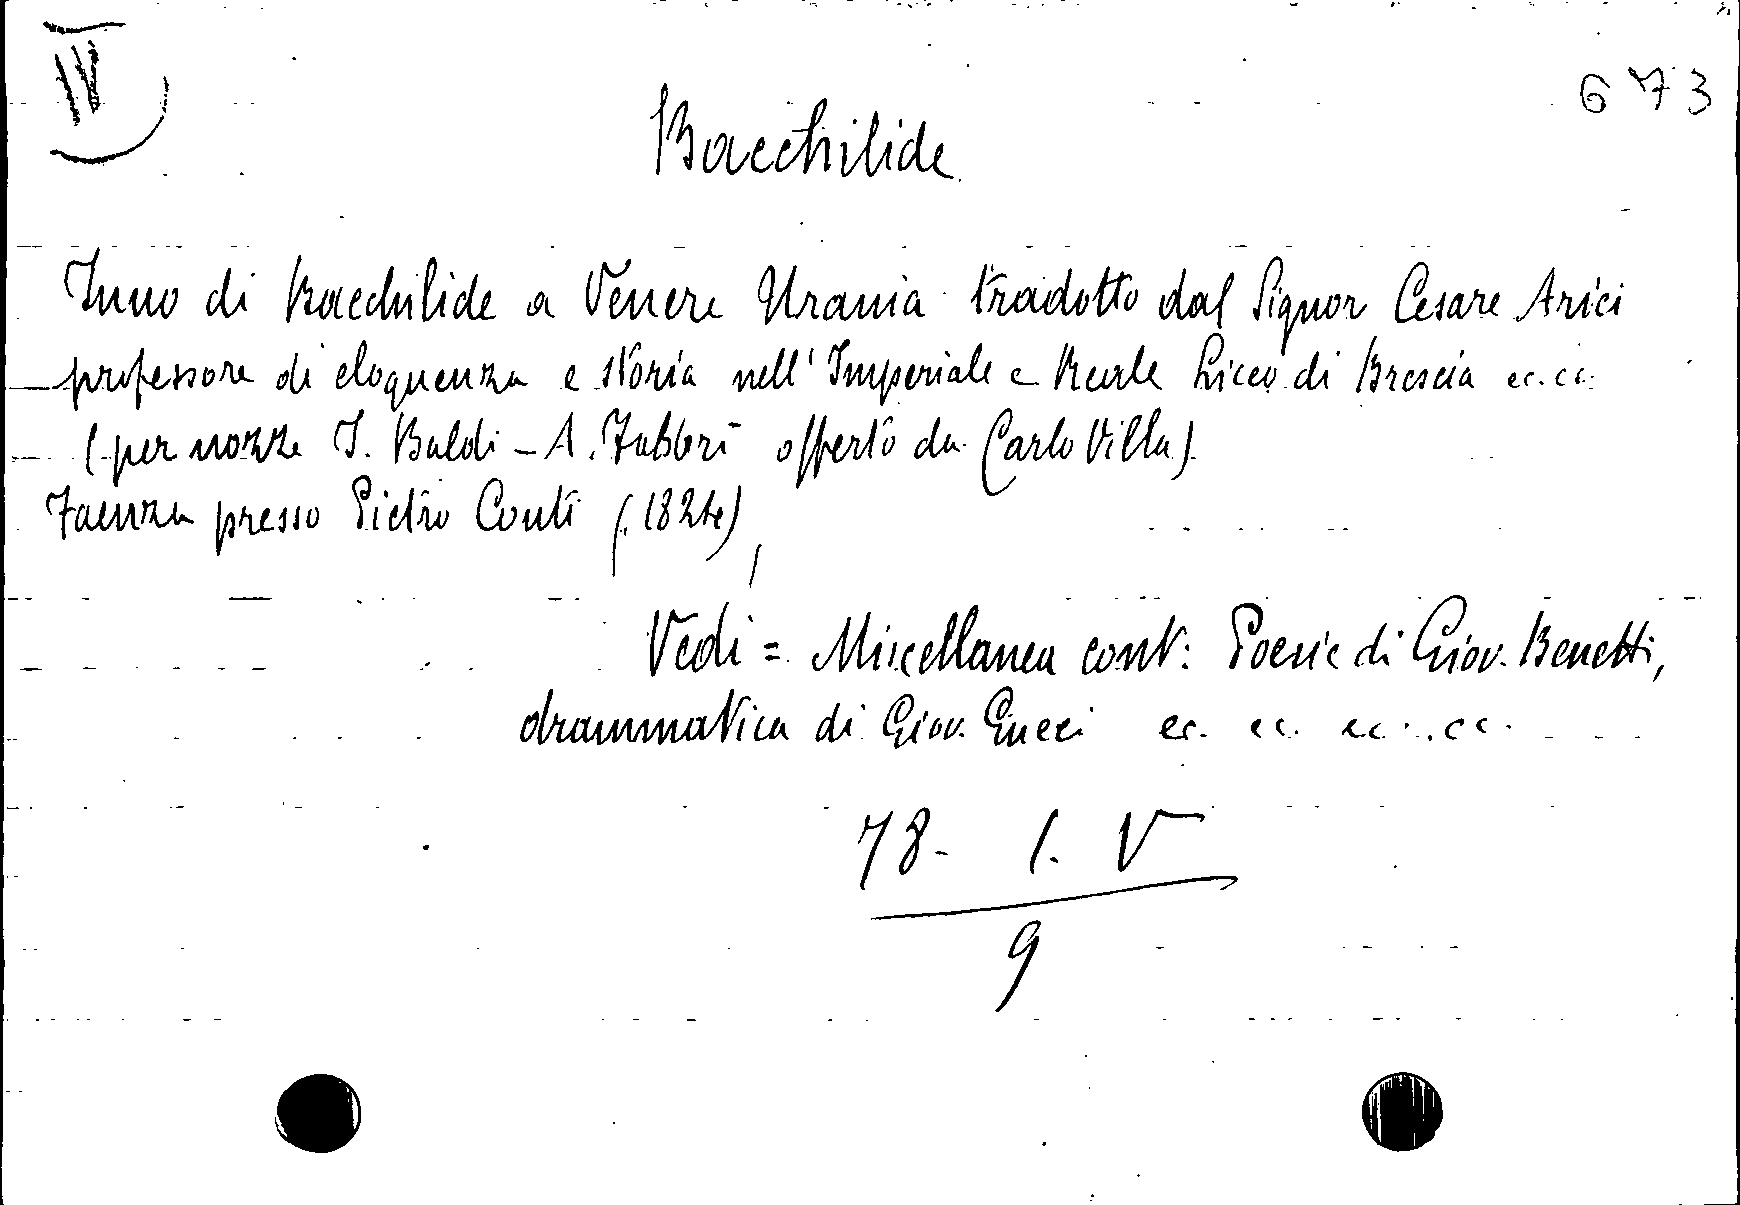 IV
673
Bacchilide
Inno di Bacchilide a Venere Urania tradotto dal Signor Cesare Arici
professore di eloquenza e storia nell' Imperiale e Reale Liceo di Brescia ec. ec.
(per nozze I. Baldi - A. Fabbri offerto da Carlo Villa).
Faenza presso Pietro Conti (1824)
Vedi = Miscellanea cont: Poesie di Giov. Benetti,
drammatica di Giov. Gucci ec. ec. ec. ec.
78- 1. V
9